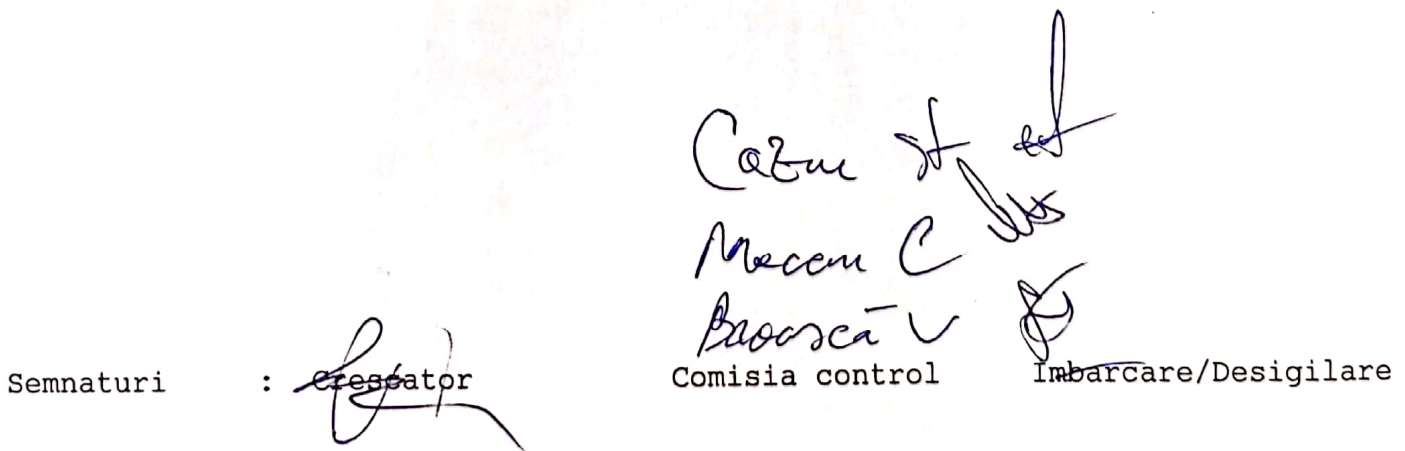 Cazac St
Mocanu C
Broască V
Semnaturi : Crescator Comisia control Imbarcare/Desigilare